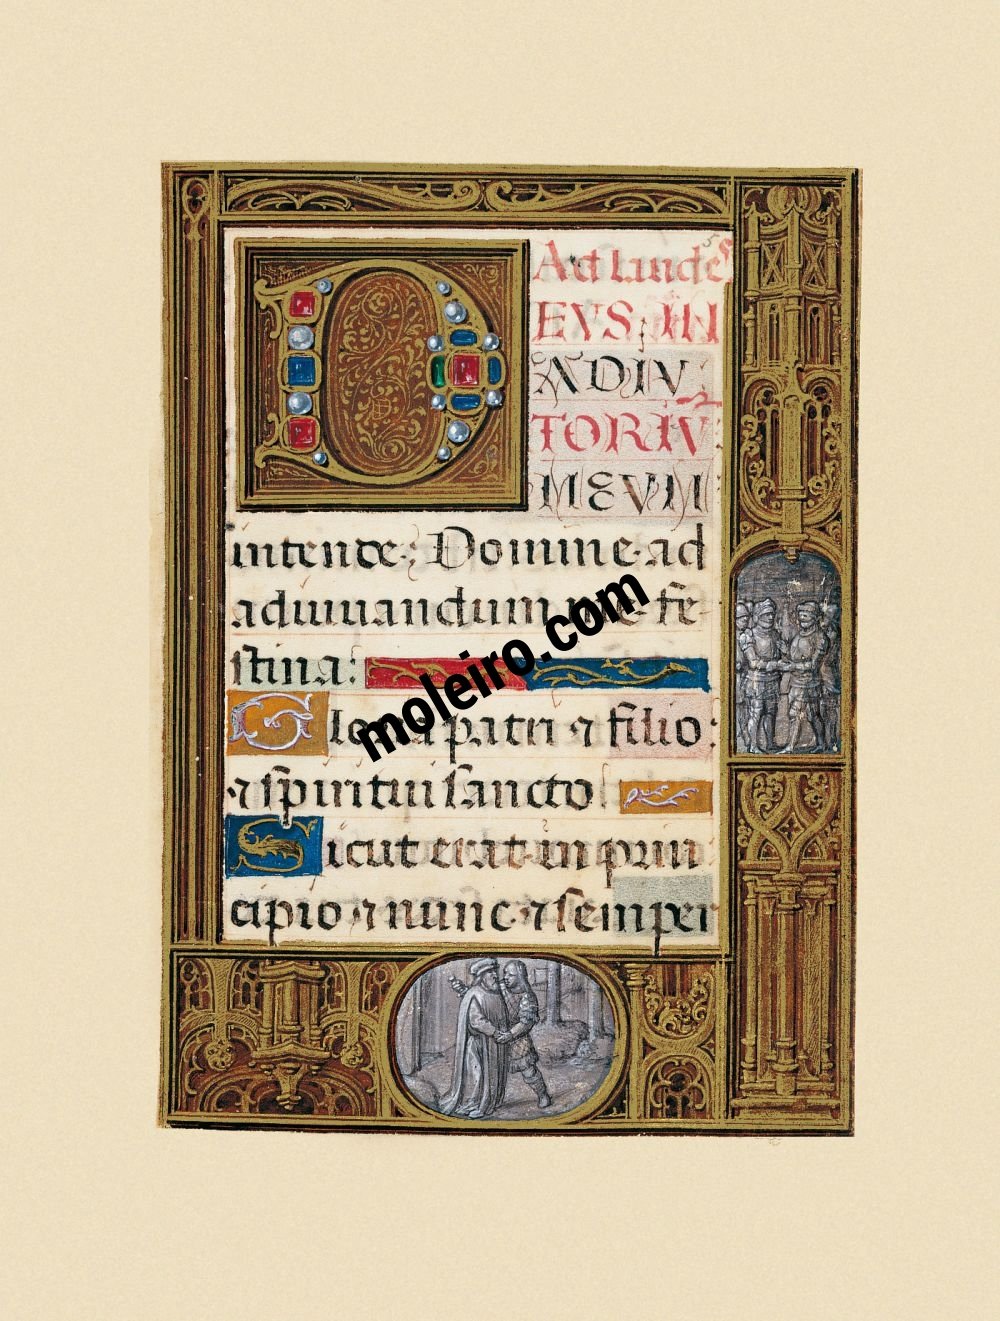 5
Ad laudes
DEVS. IN
ADIV
TORIV
MEVM
intende. Domine. ad
adiuuandum me fe-
stina:
Gloria patri ⁊ filio:
⁊ spiritui sancto
Sicut erat. in prin
cipio ⁊ nunc. ⁊ semper
moleiro.com